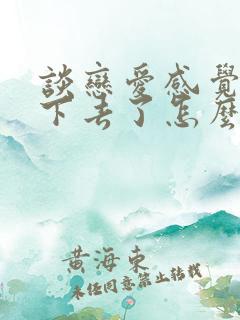 談戀愛感覺
下去了怎麼
黃海東
未經同意禁止轉載